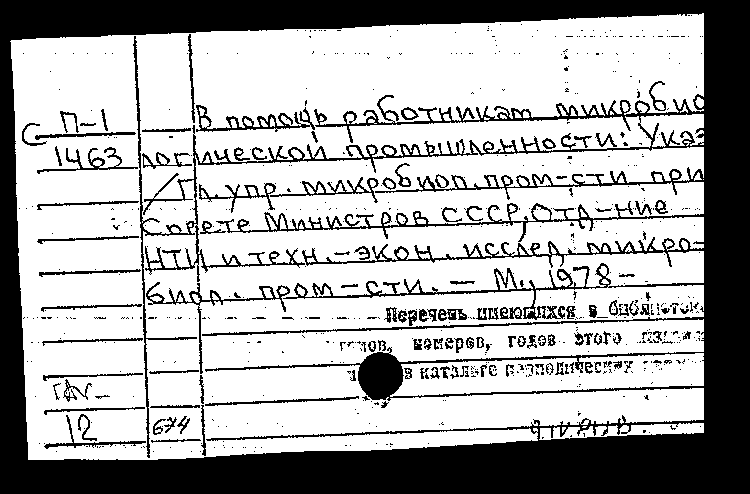 С П-1 В помощь работникам микробио
1463 логической промышленности: Указ
/Гл. упр. микробиол. пром-сти при
Совете Министров СССР, Отд-ние
НТИ и техн.-экон. исслед. микро-
биол. пром-сти. — М., 1978 -
Перечень имеющихся в библиотек
номеров, годов этого
в каталоге периодических
12 674